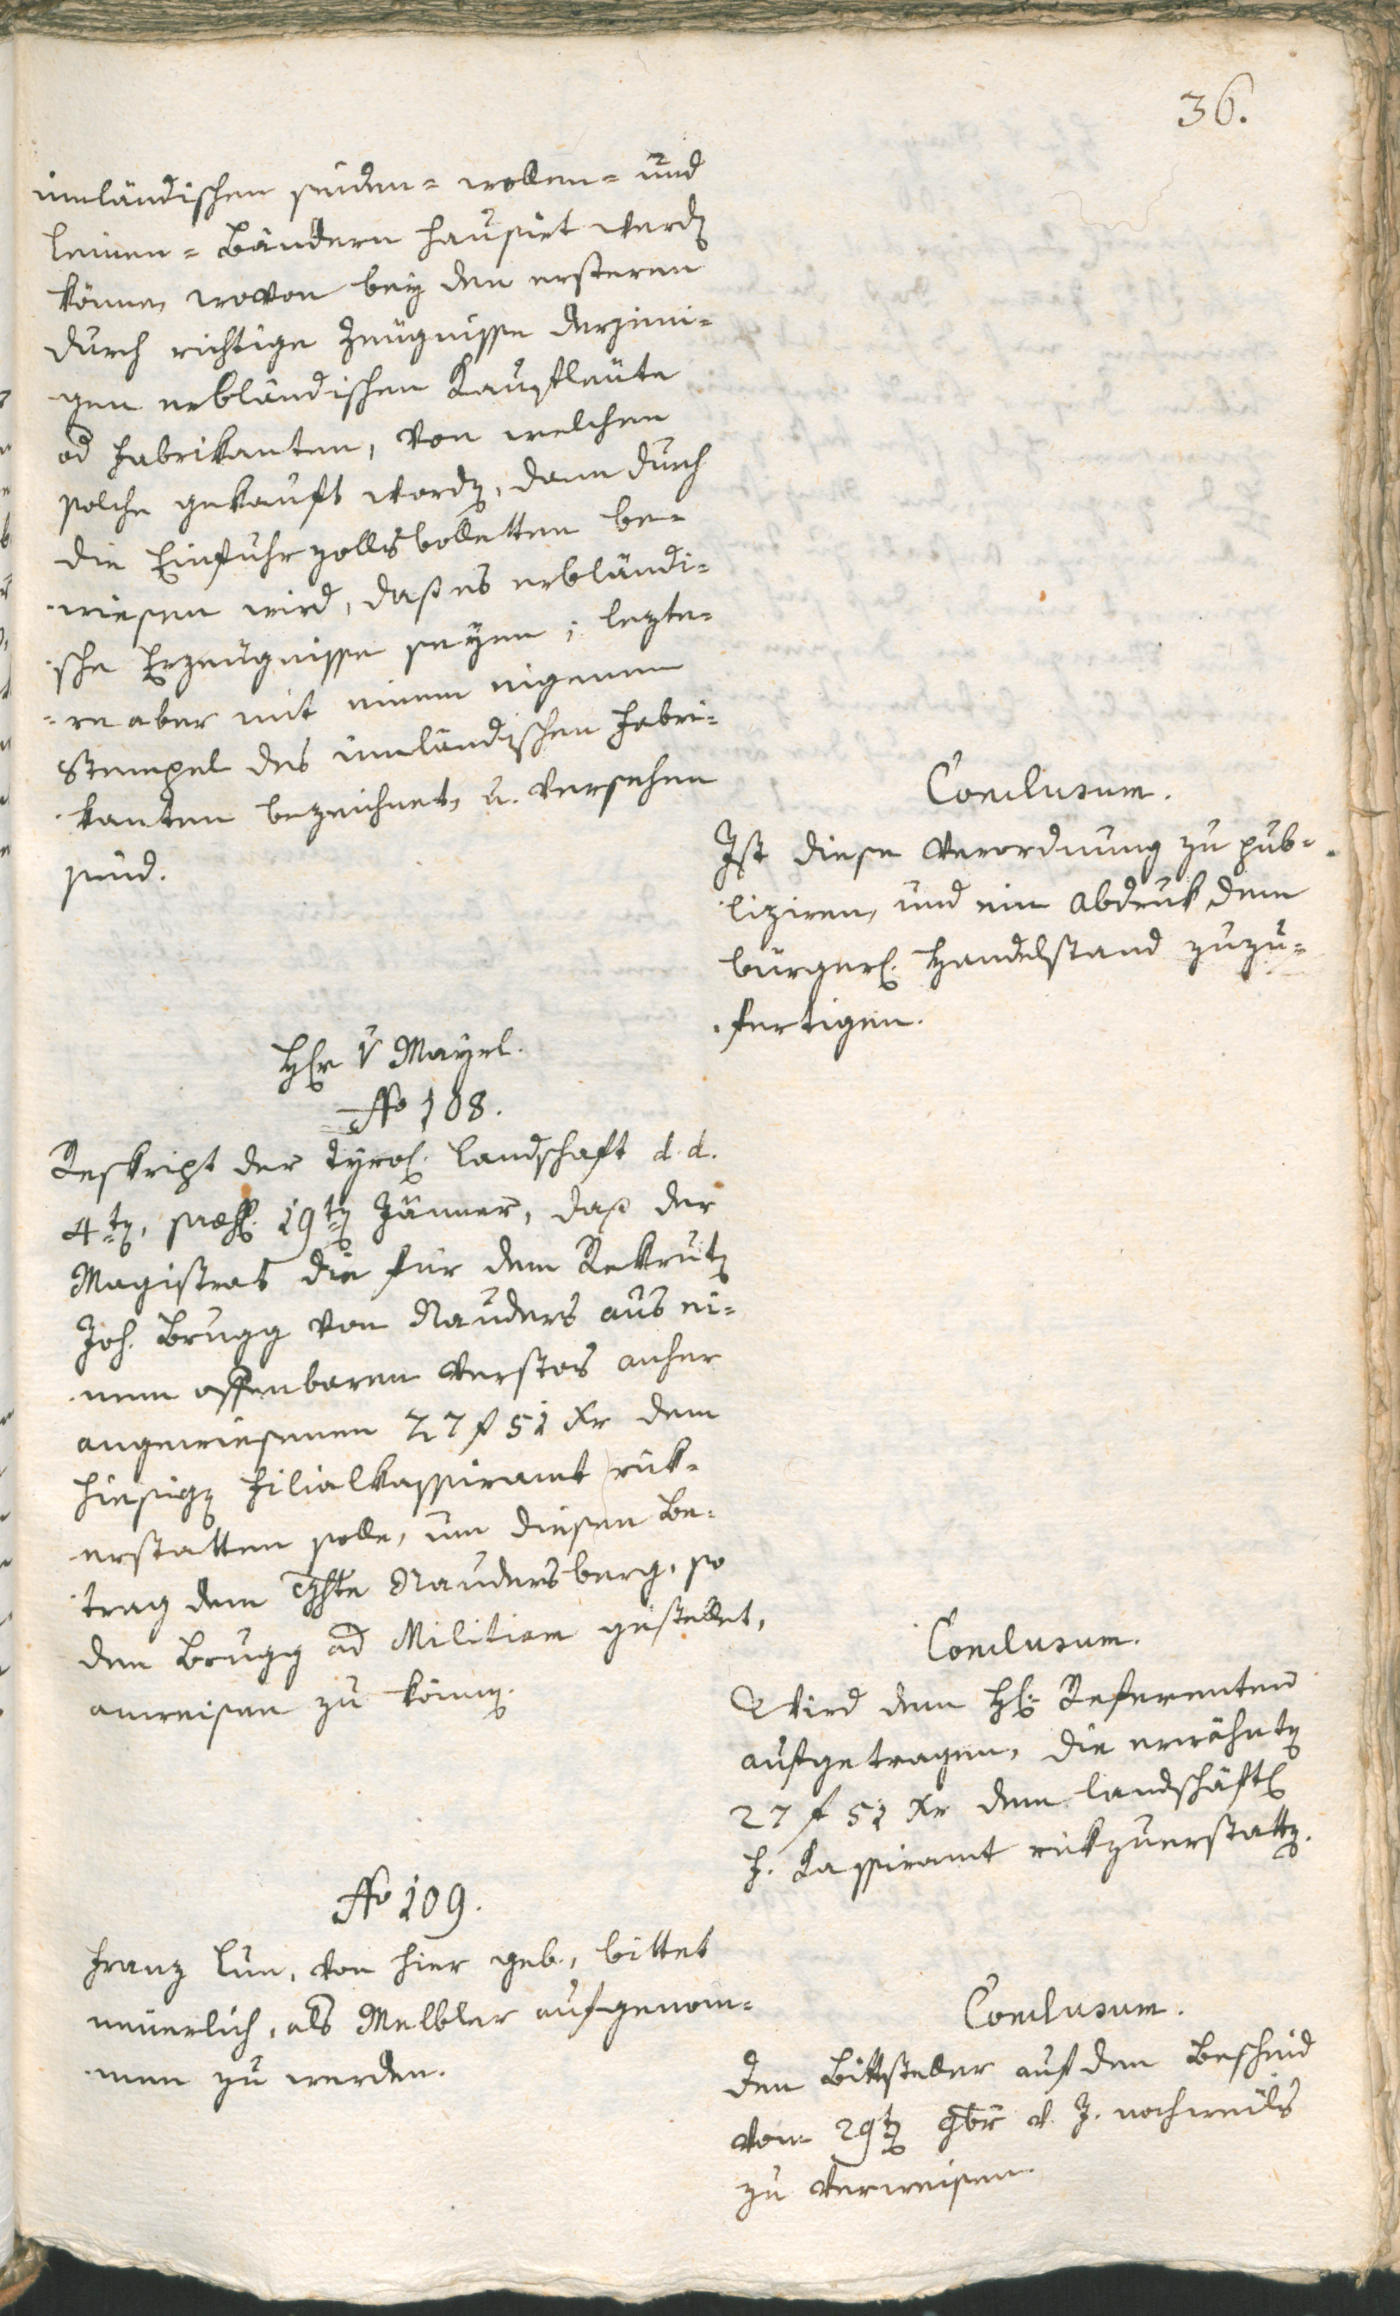 36.
innländischen seiden- wollen- und
leinen- Bändern hausirt werdn
könne, wovon bey den ersteren
durch richtige Zeugnisse derjeni-
gen erbländischen Kaufleute
od Fabrikanten, von welchen
solche gekauft wordn, dann durch
die Einfuhrzollsbolletten be-
wiesen wird, daß es erbländi-
sche Erzeugnisse seyen; lezte-
re aber mit einem eigenen
Stempel des innländischen Fabri-
kanten bezeichnet, u. versehen
sind.
Conclusum.
Ist diese Verordnung zu pub-
liziren, und ein Abdruk dem
bürgerl. Handelstand zuzu-
fertigen.
Hr v Mayrl.
No 108.
Reskript der tyrol. Landschaft d. d.
4tn, 19tn Jänner, daß der
Magistrat die für dem Rekrutn
Joh. Brugg von Nauders aus ei-
nem offenbaren Verstos anher
angewiesenen 27 f 51 xr dem
hiesign Filialkassieramt rük-
erstatten solle, um diesen Be-
trag dem Ghte Naudersberg, so
den Brugg ad Militiam gestellet,
anweisen zu könn.
Conclusum.
Wird dem H: Referenten
aufgetragen, die erwähntn
27 f 51 xr dem landschäftl
F. Kassieramt rükzuerstattn.
No 109.
Franz Lun, von hier geb., bittet
neuerlich, als Melbler aufgenom-
men zu werden.
Conclusum.
Den Bittsteller auf den Bescheid
vom 29tn 9br v. J. nochmals
zu verweisen.